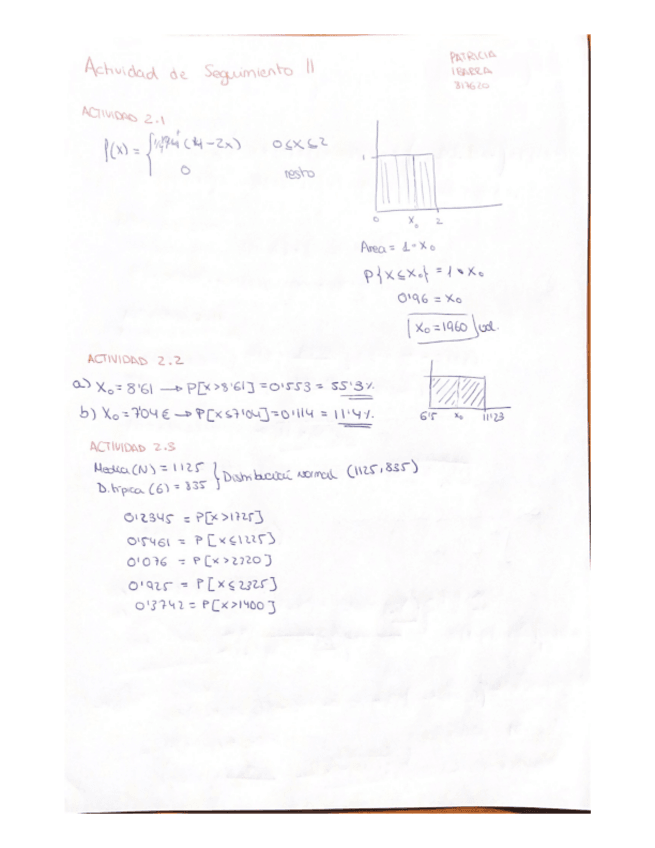 Actividad de Seguimiento II
PATRICIA
IBARRA
817620
ACTIVIDAD 2.1
f(x) = { (4-2x) 0≤x≤2
0 resto
1
0 x₀ 2
Area = 1·x₀
P{x≤x₀} = 1·x₀
0'96 = x₀
x₀ = 1960 ud.
ACTIVIDAD 2.2
a) x₀ = 8'61 → P[x>8'61] = 0'553 = 55'3%
b) x₀ = 7'04€ → P[x≤7'04] = 0'114 = 11'4%
6'5 x₀ 11'23
ACTIVIDAD 2.3
Media (N) = 1125
D. típica (6) = 835 } Distribución normal (1125, 835)
0'2345 = P[x>1725]
0'5461 = P[x≤1225]
0'076 = P[x>2320]
0'925 = P[x≤2325]
0'3742 = P[x>1400]